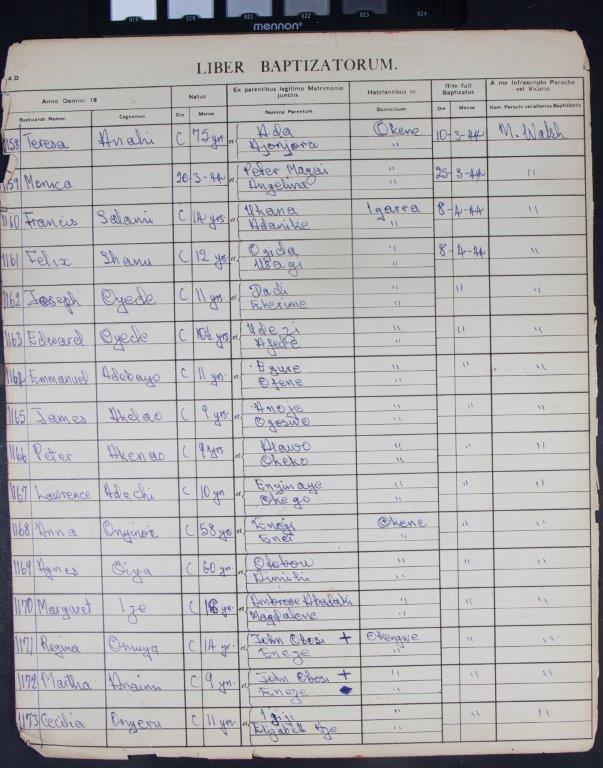 019 020 021 022 023 024
mennon
LIBER BAPTIZATORUM.
A D
Anno Domini 19 Natus Ex parentibus legitimo Matrimonio junctis Habitantibus in Rite fuit Baptizatus A me Infrascripto Parocho vel Vicario
Baptizandi Nomen Cognomen Die Mense Nomina Parentum Domicilium Die Mense Nom. Parochi vel alterius Baptizantis
1158 Teresa Anahi C 75 yrs et Ada Okene 10-3-44 M. Walsh
Ajonjora "
1159 Monica 20-3-44 et Peter Magaji " 25-3-44 "
Angelina "
1160 Francis Salami C 14 yrs et Ukana Igarra 8-4-44 "
Adanike "
1161 Felix Shanu C 12 yrs et Ogida " 8-4-44 "
"
1162 Joseph Oyede C 11 yrs et Dadi " " "
Ekerime "
1163 Edward Oyede C yrs et Udezi " " "
Ajede "
1164 Emmanuel Adebayo C 11 yrs et Egure " " "
Ofene "
1165 James Akelao C 9 yrs et Anoje " " "
"
1166 Peter Akenao C 9 yrs et " " "
Okeko "
1167 Lawrence Adechi C 10 yrs et Enyimaye " " "
Okego "
1168 Anna Onyinoi C 58 yrs et Eneji Okene " "
Enei "
1169 Agnes Oiya C 60 yr et Otobow " " "
"
1170 Margaret Ize C yrs et Ambrose Abadaki " " "
Magdalene "
1171 Regina Omuya C 14 yr. et John Obosi + Okengwe " "
Eneze "
1172 Martha Anaimi C 9 yr. et John Obosi + " " "
Eneze "
1173 Cecilia Onyeru C 11 yrs et Ijiji " " "
Elizabeth Aze "